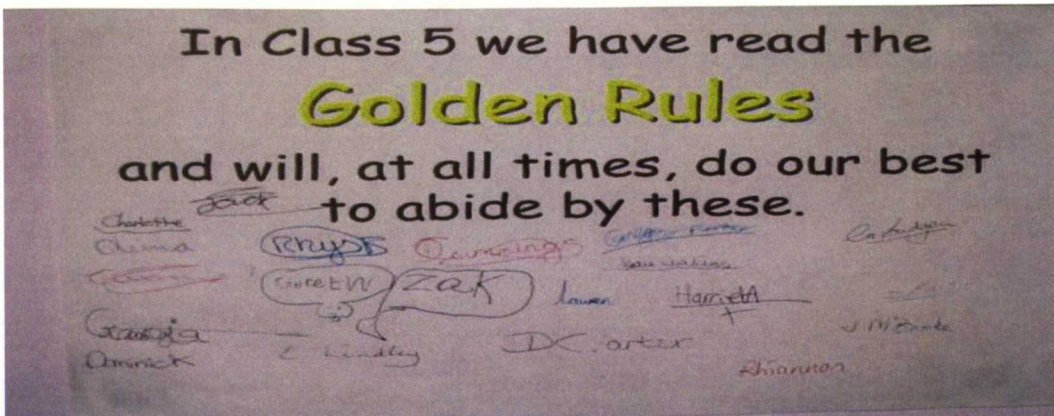 In Class 5 we have read the
Golden Rules
and will, at all times, do our best
to abide by these.
Jack
Charlotte
Rhys
Cummings
Zak
Lauren
Harriet
Georgia
L Lindley
D C.arter
Dominick
Rhiannon